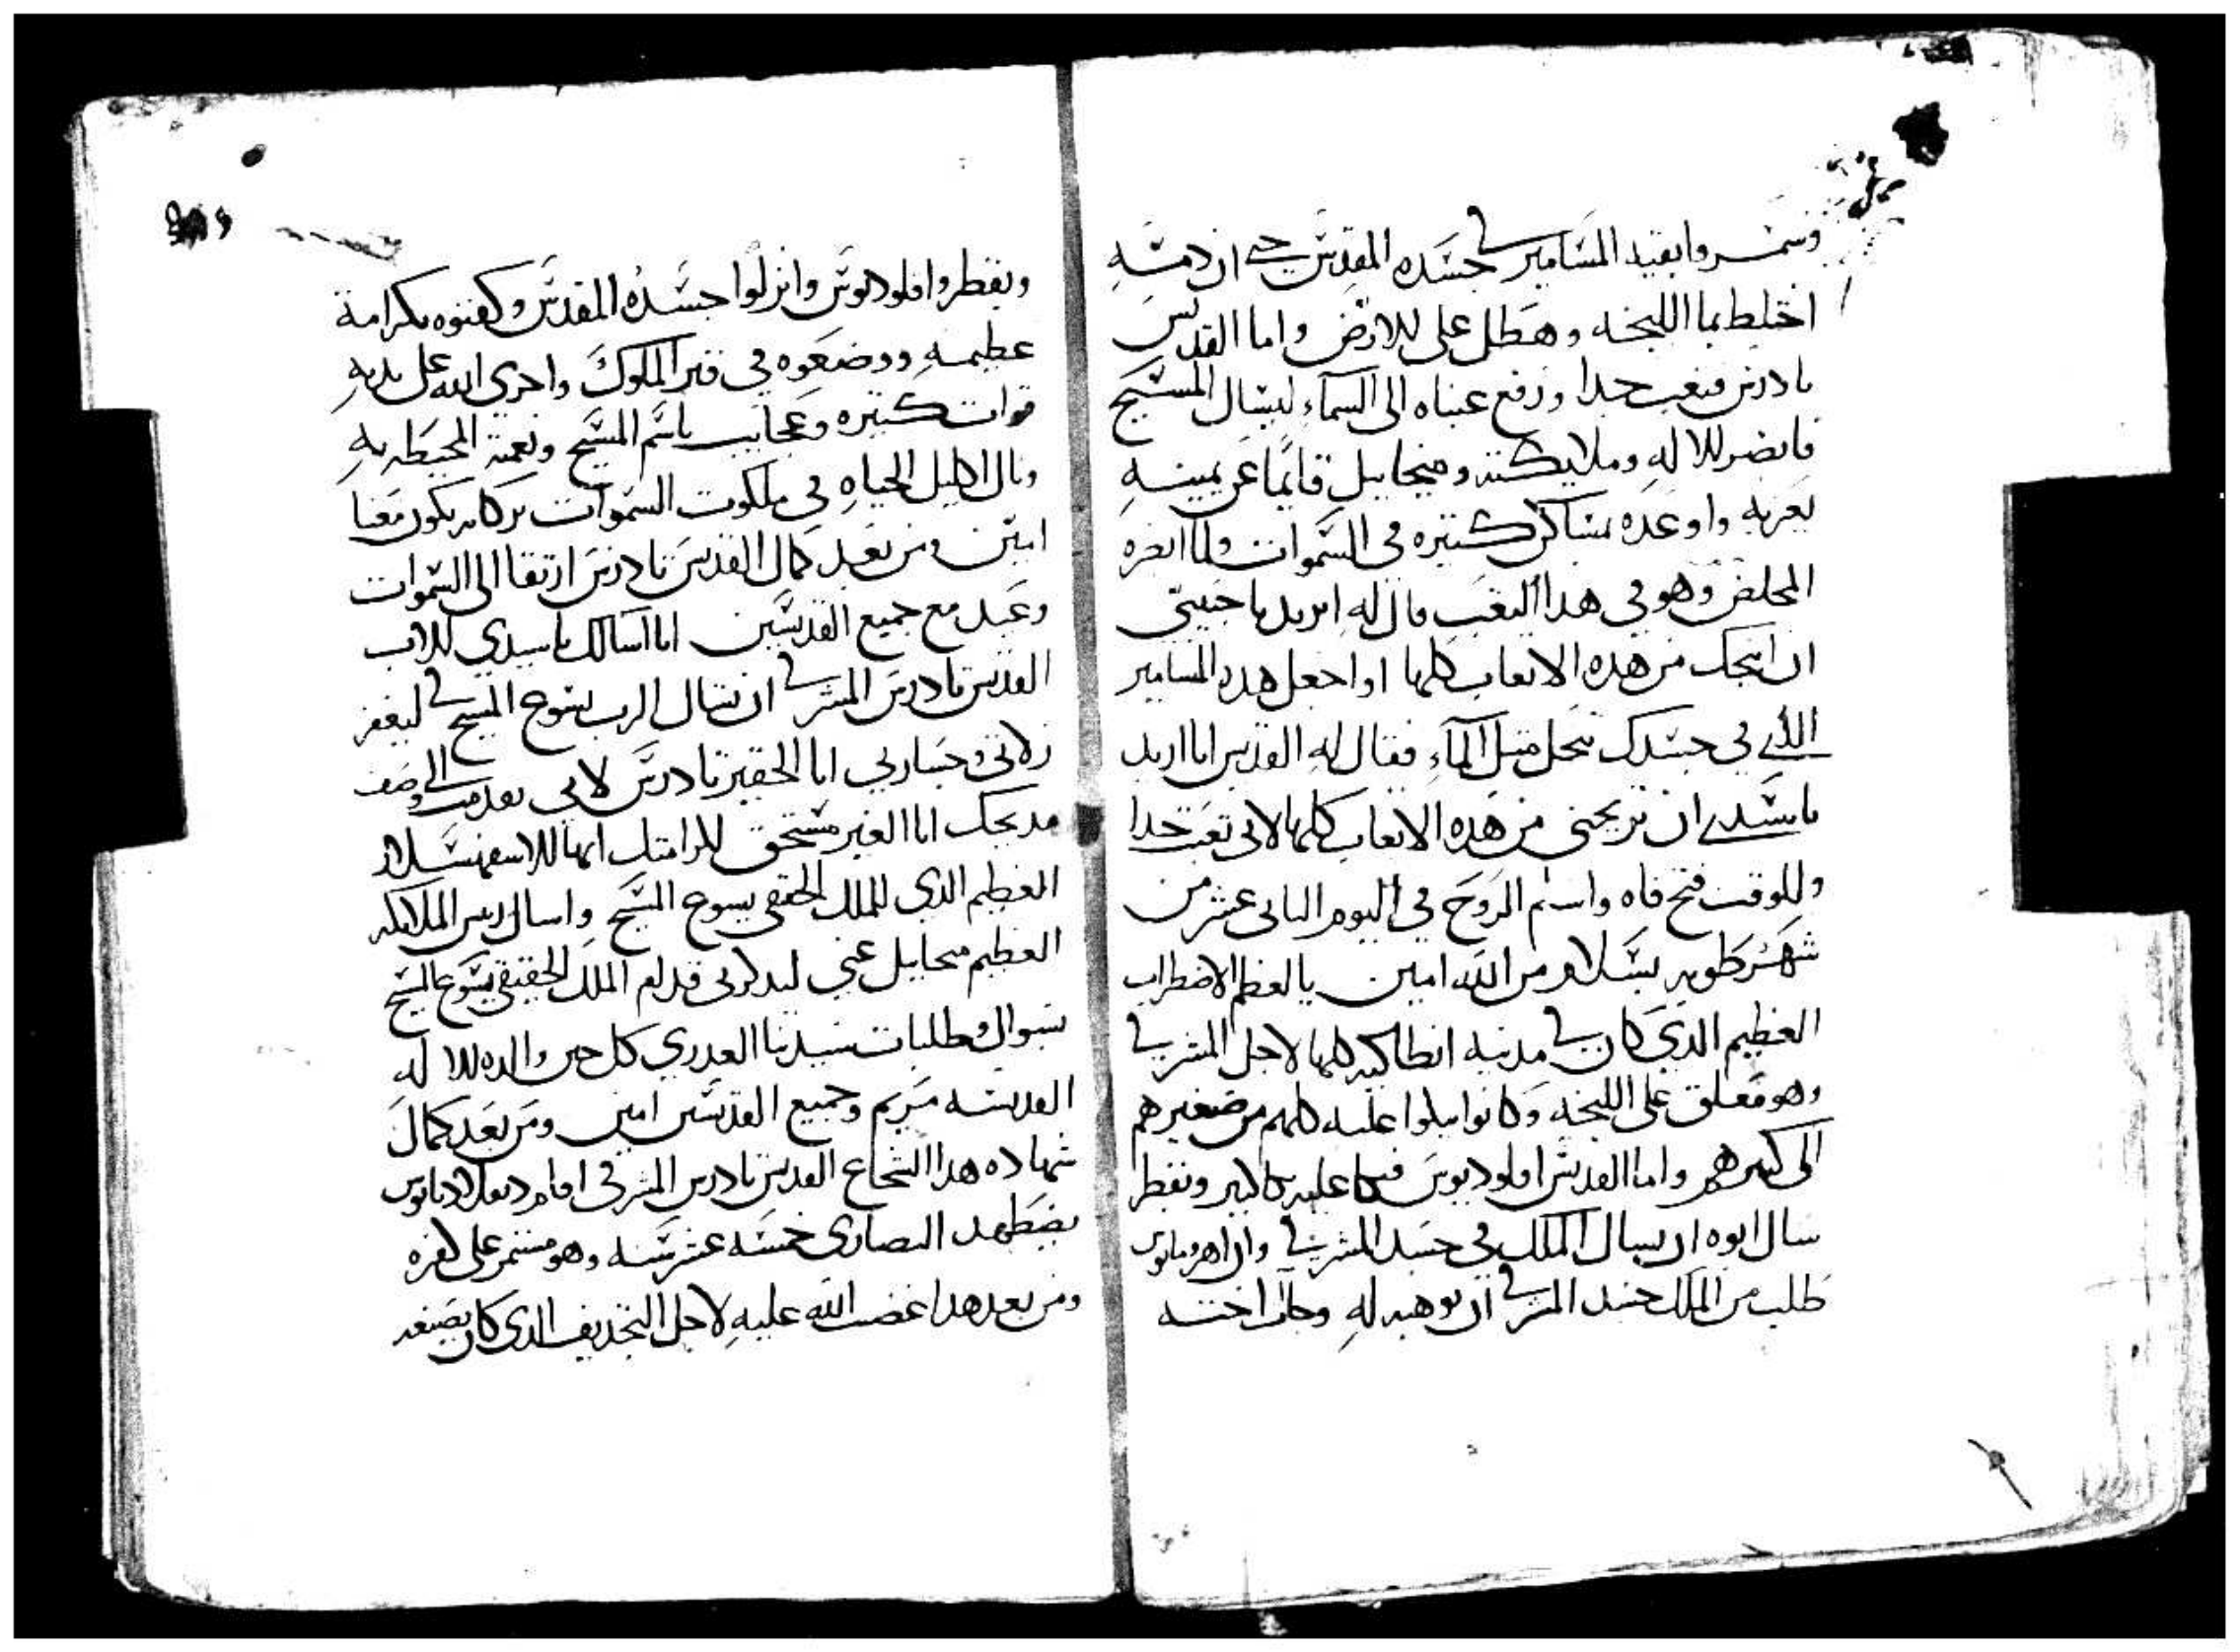 وسمروا بقيد المسامير في جسده المقدس حتى ان دمه
اختلط بما اللبخه وهطل على الارض واما القديس
تادرس فتعب جدا ورفع عيناه الى السماء ليسال المسيح
فابصر الاله وملايكته وميخاييل قايما عن يمينه
يعزيه واوعده مساكن كتيره في السموات ولما ابصره
المخلص وهو في هدا التعب قال له اتريد يا حبيبي
ان انيحك من هده الاتعاب كلها او اجعل هده المسامير
الدي في جسدك تنحل متل الماء فقال له القديس انا اريد
يا سيدي ان تريحني من هده الاتعاب كلها لاني تعبت جدا
وللوقت فتح فاه واسلم الروح في اليوم التاني عشر من
شهر طوبه بسلام من الله امين يا لعظم الاضطراب
العظيم الدي كان في مدينة انطاكيه كلها لاجل المشرقي
وهو معلق على اللبخه وكانوا يبكوا عليه كلهم من صغيرهم
الى كبيرهم واما القديس اقلوديوس فبكا عليه كتير وبقطر
سال ابوه ان يسال الملك في جسد المشرقي وان
طلب من الملك جسد المشرقي ان يوهبه له وجات اخته
وبقطر واقلوديوس وانزلوا جسده المقدس وكفنوه بكرامة
عظيمه ووضعوه في قبر الملوك واجرى الله على يديه
قوات كتيره وعجايب باسم المسيح ونعمته المحيطه به
ونال اكليل الحياه في ملكوت السموات بركاته تكون معنا
امين ومن بعد كمال القديس تادرس ارتقا الى السموات
وعيد مع جميع القديسين انا اسالك يا سيدي الاب
القديس تادرس المشرقي ان تسال الرب يسوع المسيح لي ليغفر
زلاتي وجسارتي انا الحقير تادرس لاني تقدمت الى وصف
مديحك انا الغير مستحق لكرامتك ايها الاسفهسلار
العظيم الدي للملك الحقيقي يسوع المسيح واسال ريس الملايكه
العظيم ميخاييل عني ليدكرني قدام الملك الحقيقي يسوع المسيح
بسوال وطلبات سيدتنا العدري كل حين والدة الاله
القديسه مريم وجميع القديسين امين ومن بعد كمال
شهادة هدا الشجاع القديس تادرس المشرقي اقام دقلاديانوس
يضطهد النصارى خمسة عشر سنه وهو مستمر على كفره
ومن بعد هدا غضب الله عليه لاجل التجديف الدي كان يصنعه